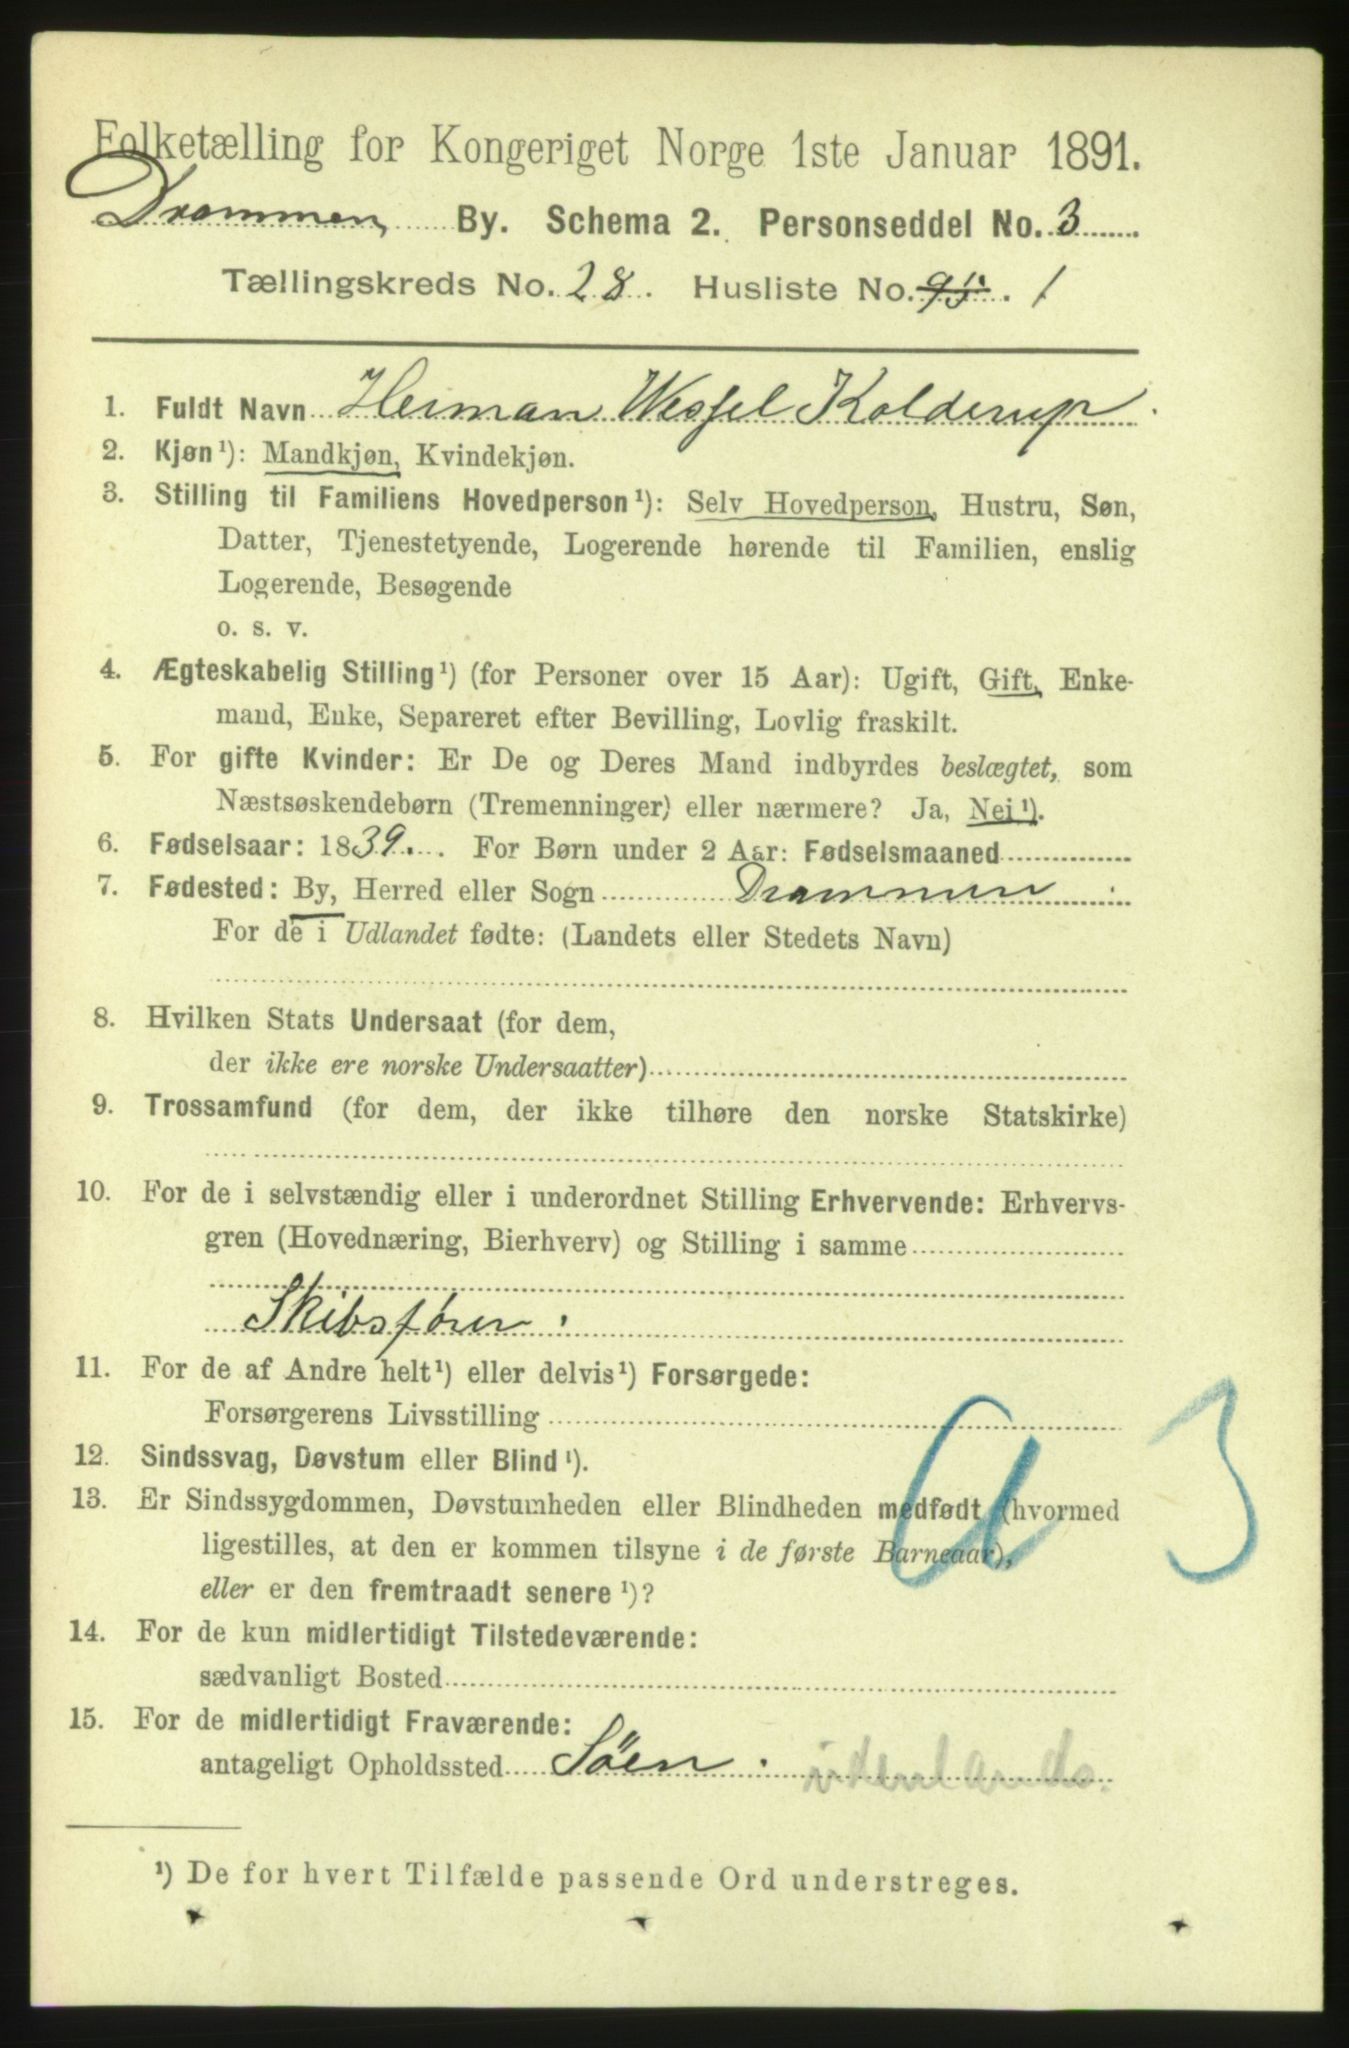 Folketælling for Kongeriget Norge 1ste Januar 1891.
Drammen By. Schema 2. Personseddel No. 3
Tællingskreds No. 28. Husliste No. 95. 1
1. Fuldt Navn Herman Wessel Kolderup.
2. Kjøn ¹): Mandkjøn, Kvindekjøn.
3. Stilling til Familiens Hovedperson ¹): Selv Hovedperson, Hustru, Søn,
Datter, Tjenestetyende, Logerende hørende til Familien, enslig
Logerende, Besøgende
o. s. v.
4. Ægteskabelig Stilling ¹) (for Personer over 15 Aar): Ugift, Gift, Enke-
mand, Enke, Separeret efter Bevilling, Lovlig fraskilt.
5. For gifte Kvinder: Er De og Deres Mand indbyrdes beslægtet, som
Næstsøskendebørn (Tremenninger) eller nærmere? Ja, Nei ¹).
6. Fødselsaar: 1839. For Børn under 2 Aar: Fødselsmaaned
7. Fødested: By, Herred eller Sogn Drammen.
For de i Udlandet fødte: (Landets eller Stedets Navn)
8. Hvilken Stats Undersaat (for dem,
der ikke ere norske Undersaatter)
9. Trossamfund (for dem, der ikke tilhøre den norske Statskirke)
10. For de i selvstændig eller i underordnet Stilling Erhvervende: Erhvervs-
gren (Hovednæring, Bierhverv) og Stilling i samme
Skibsfører.
11. For de af Andre helt ¹) eller delvis ¹) Forsørgede:
Forsørgerens Livsstilling
12. Sindssvag, Døvstum eller Blind ¹).
13. Er Sindssygdommen, Døvstumheden eller Blindheden medfødt (hvormed
ligestilles, at den er kommen tilsyne i de første Barneaar),
eller er den fremtraadt senere ¹)?
a 3
14. For de kun midlertidigt Tilstedeværende:
sædvanligt Bosted
15. For de midlertidigt Fraværende:
antageligt Opholdssted Söen. idenlands.
¹) De for hvert Tilfælde passende Ord understreges.